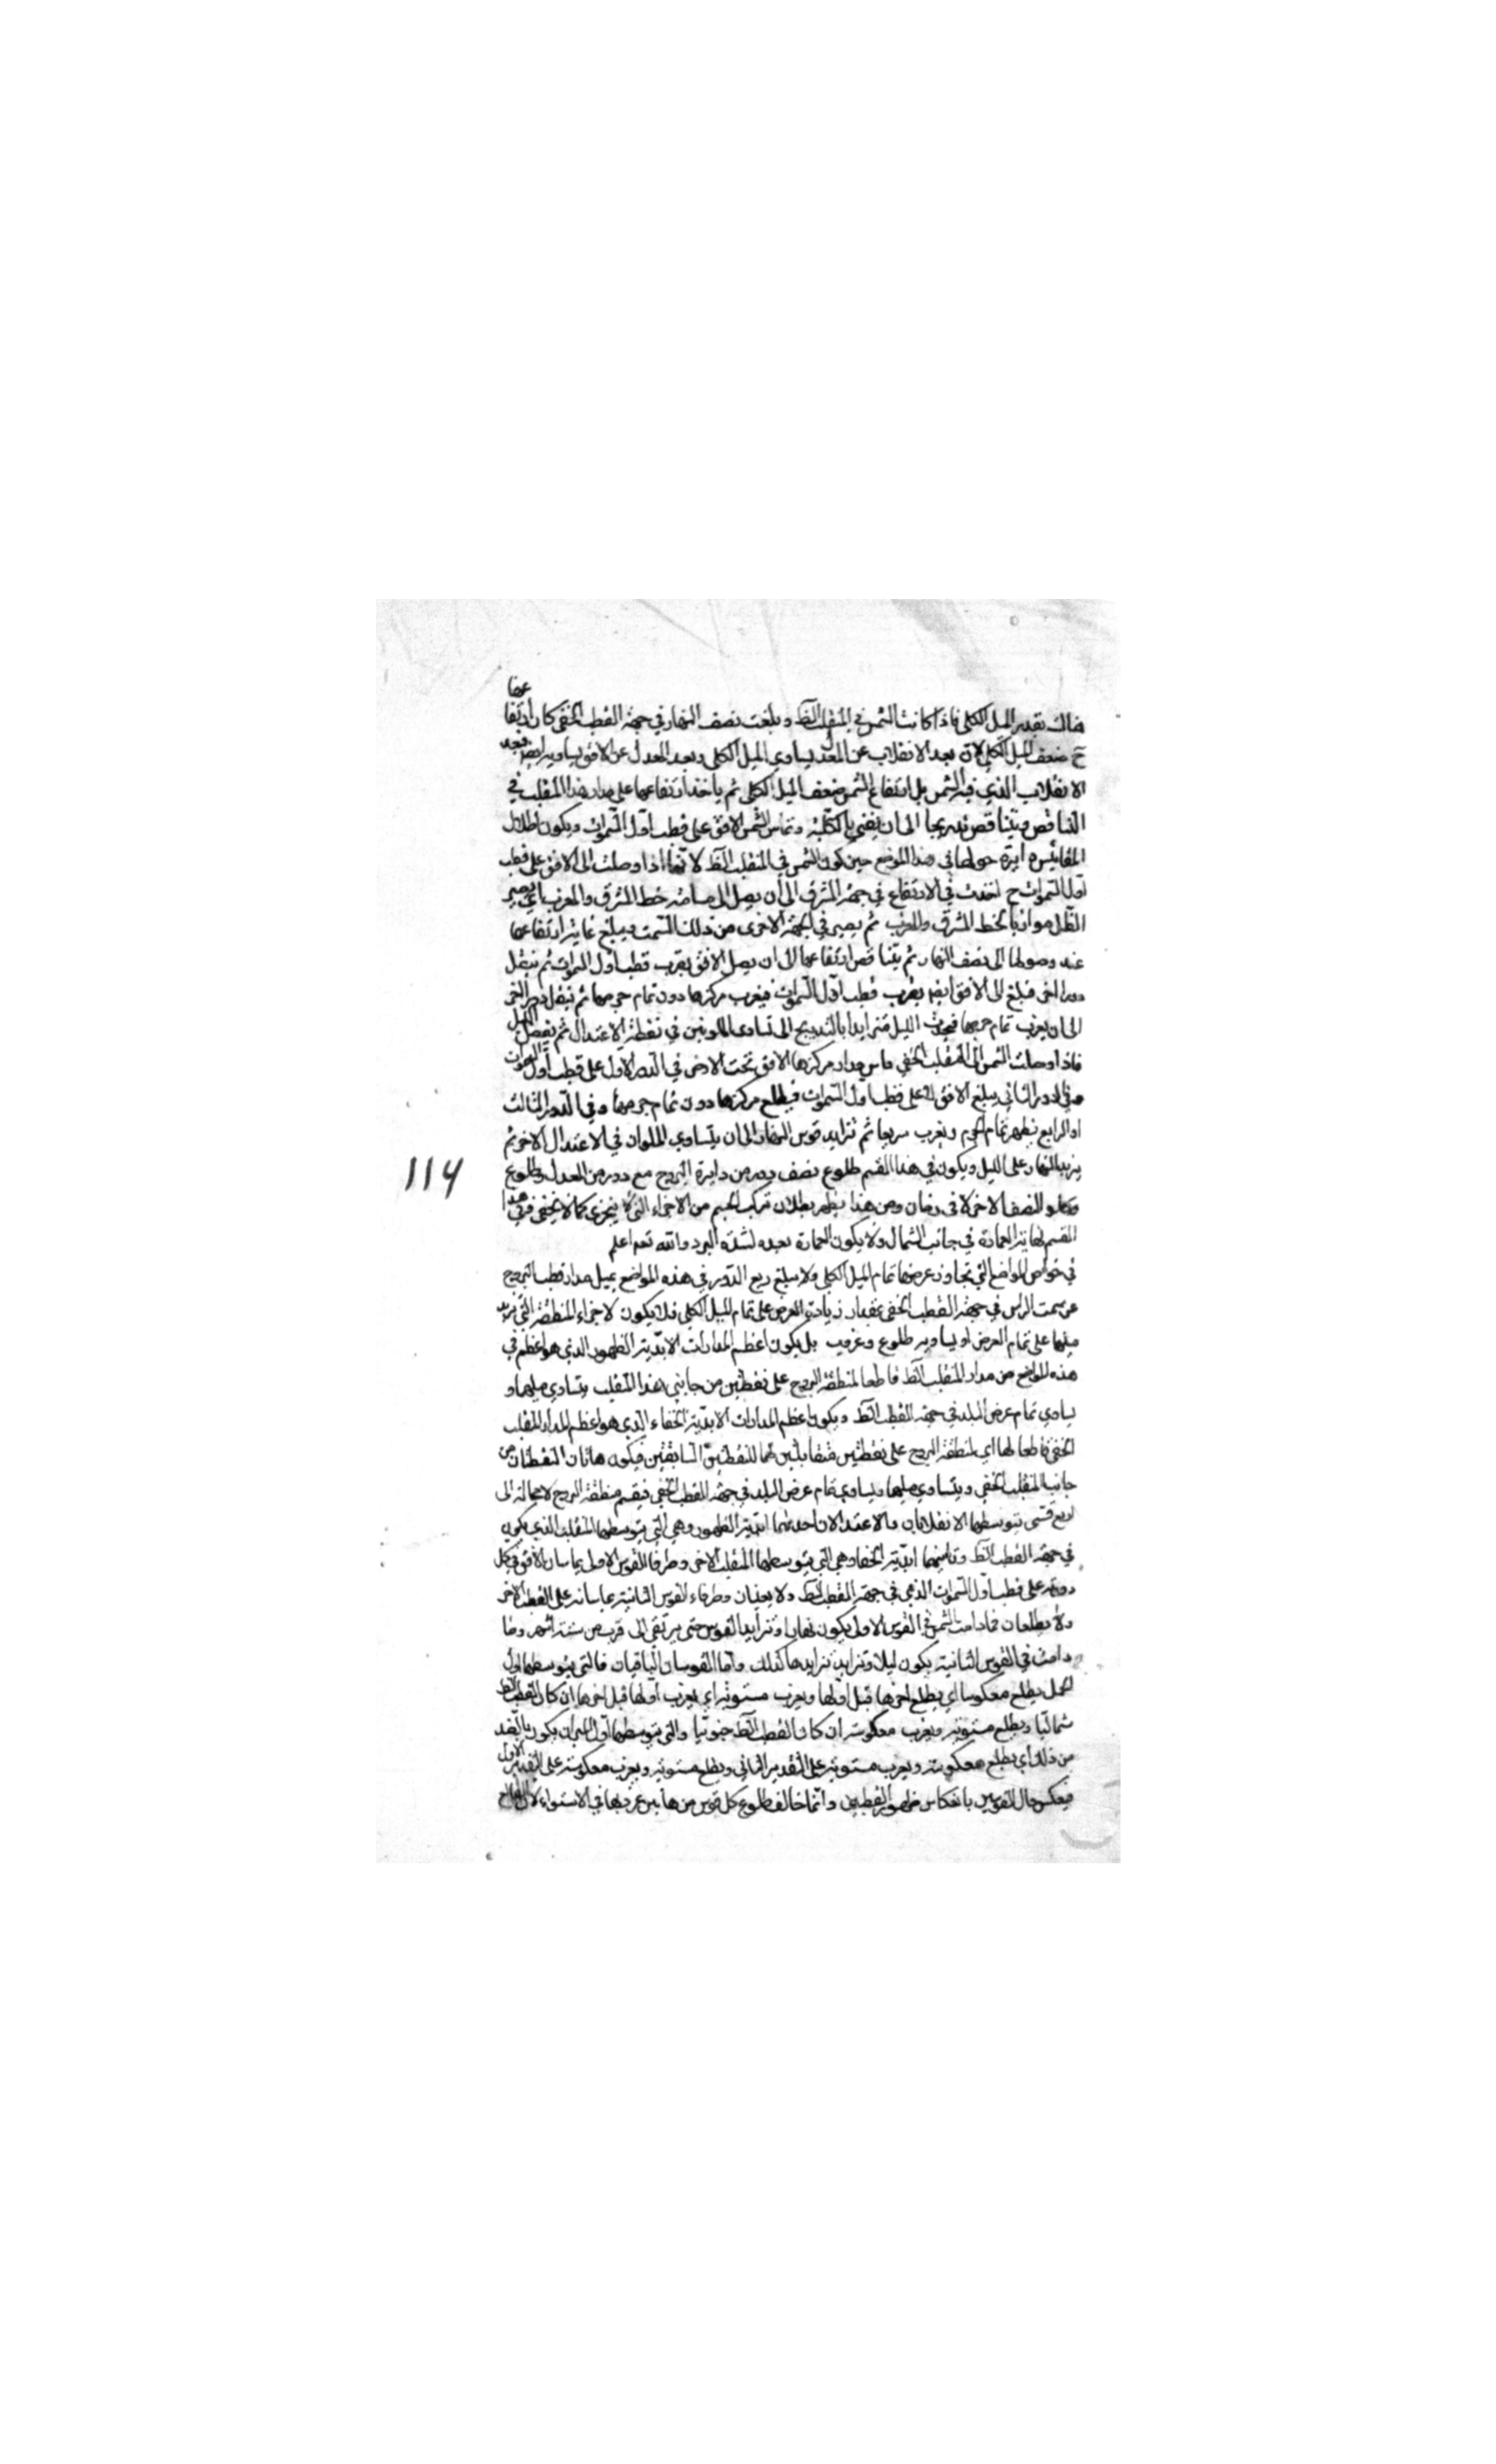 عها
هناك بقدر الميل الكلى فاذا كانت الشمس في المنقلب الظ وبلغت نصف النهار في جهة القطب الخفي كان ارتفا
ح ضعف الميل الكلي لان بعد الانقلاب عن المعدل يساوي الميل الكلى وبعد المعدل عن الافق يساويه ايضا فبعد
الانقلاب الذي فيه الشمس بل ارتفاع الشمس ضعف الميل الكلى ثم ياخذ ارتفاعها على مدار هذا المنقلب في
التناقص ويتناقص تدريجا الى ان يفنى بالكلية وتماس الشمس الافق على قطب اول السموات ويكون اظلال
المقاييس دايرة حولها في هذا الموضع حين كون الشمس في المنقلب الظ لانها اذا وصلت الى الافق على قطب
اول السموات ح اخذت في الارتفاع في جهة المشرق الى ان يصل الى مسامتة خط المشرق والمغرب اي يصير
الظل موازيا لخط المشرق والمغرب ثم يصير في الجهة الاخرى من ذلك السمت ويبلغ غاية ارتفاعها
عند وصولها الى نصف النهار ثم يتناقص ارتفاعها الى ان يصل الافق بقرب قطب اول السموات ثم ينتقل
دورا اخى فبلغ الى الافق ايضا بقرب قطب اول السموات فيغرب مركزها دون تمام جرمها ثم ينتقل دورا اخى
الى ان يغرب تمام جرمها فيحدث الليل متزايدا بالتدريج الى تساوى الملوين في نقطة الاعتدال ثم يفضل الليل
فاذا وصلت الشمس الى المنقلب الخفي ماس مدار مركزها الافق تحت الارض في الدور الاول على قطب اول السموات
وفي الدور الثاني يبلغ الافق لا على قطب اول السموات فيطلع مركزها دون تمام جرمها وفي الدور الثالث
او الرابع يظهر تمام الجرم ويغرب سريعا ثم تزايد قوس النهار الى ان يتساوي الملوان في الاعتدال الاخر ثم
يزيد النهار على الليل ويكون في هذا القسم طلوع نصف دور من دايرة البروج مع دور من المعدل وطلوع
النصف الاخر لا في زمان ومن هذا يظهر بطلان تركب الجسم من الاجزاء التي لا يتجزى كما لا يخفى ففي هذا
القسم نهاية العمارة في جانب الشمال ولا يكون العمارة بعده لشدة البرد والله تعم اعلم
في خواص المواضع التي تجاوز عرضها تمام الميل الكلى ولا يبلغ ربع الدور في هذه المواضع يميل مدار قطب البروج
عن سمت الراس في جهة القطب الخفي بمقدار زيادة العرض على تمام الميل الكلي فلا يكون لاجزاء المنطقة التي يزيد
ميلها على تمام العرض او يساويه طلوع وغروب بل يكون اعظم المدارات الابدية الظهور الذي هو اعظم في
هذه المواضع من مدار المنقلب الظ قاطعا لمنطقة البروج على نقطتين من جانبي هذا المنقلب يتساوي ميلهما و
يساوي تمام عرض البلد في جهة القطب الظ ويكون اعظم المدارات الابدية الخفاء الذي هو اعظم المدار المنقلب
الخفي قاطعا لها اي لمنطقة البروج على نقطتين متقابلتين لهما للنقطتين السابقتين فيكون هاتان النقطتان من
جانب المنقلب الخفي ويتساوي ميلهما ويساوي تمام عرض البلد في جهة القطب الخفي فيقسم منطقة البروج لا محالة الى
اربع قسى يتوسطها الانقلابان والاعتدالان احديهما ابدية الظهور وهي التي يتوسطها المنقلب الذي يكون
في جهة القطب الظ وثانيتهما ابدية الخفا وهي التي يتوسطها المنقلب الاخى وطرفا القوس الاولى يماسان الافق في كل
دورة على قطب اول السموات الذي في جهة القطب الظ ولا يغيبان وطرفاء القوس الثانية يماسانه على القطب الاخر
ولا يطلعان فما دامت الشمس في القوس الاولى يكون نهارا وتزايد القوس حتى يرتقى الى قرب من ستة اشهر وما
دامت في القوس الثانية يكون ليلا وتزايد تزايدها كذلك واما القوسان الباقيان فالتي يتوسطها اول
الحمل يطلع معكوسا اي يطلع اخرها قبل اولها ويغرب مستويه اي يغرب اولها قبل اخرها ان كان القطب الظ
شماليا ويطلع مستويه ويغرب معكوسته ان كان القطب الظ جنوبيا والتي يتوسطها اول الميزان يكون بالضد
من ذلك اي يطلع معكوسته ويغرب مستويه على التقدير الثاني ويطلع مستويه ويغرب معكوسته على التقدير الاول
فينعكس حال القوسين بانعكاس ظهور القطبين وانما خالف طلوع كل قوس من هاتين غروبها في الاستواء لان
114